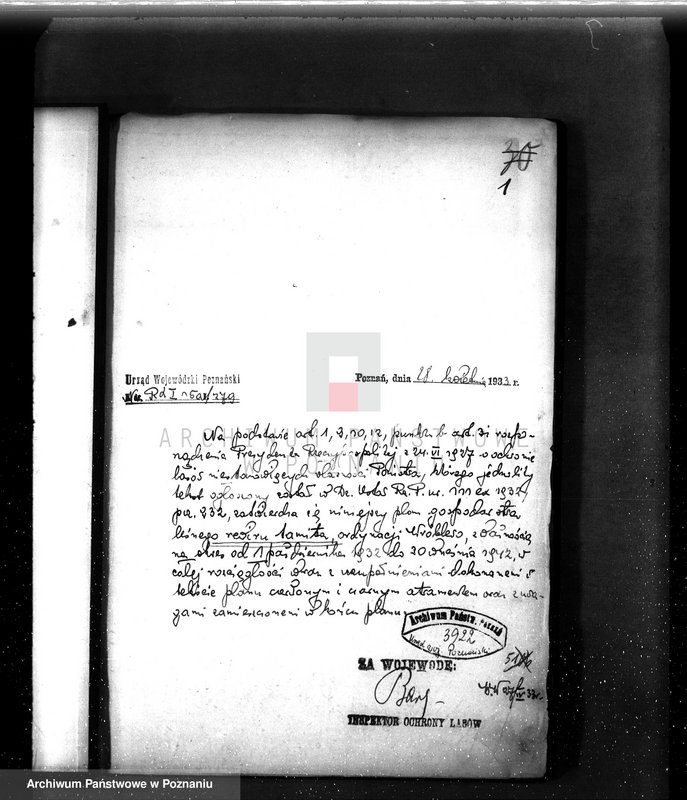 70
1
Urząd Wojewódzki Poznański
Poznań, dnia 28. 1933. r.
Nr. Rd I 279
Na podstawie art. 1, 10, 12, punkt art. 31 rozpo-
rządzenia Prezydenta Rzeczypospolitej z 24.VI 1927 o ochronie
lasów niestanowiących własności Państwa, którego jednolity
tekst ogłoszony został w Dz. Ustaw Rz.P. nr. 111 ex 1932,
poz. 932, zatwierdza się niniejszy plan gospodarstwa
leśnego rewiru ordynacji z ważnością
na okres od 1 października 1932 do 30 września 1942, w
całej rozciągłości wraz z uzupełnieniami dokonanemi w
tekście planu czerwonym i czarnym atramentem oraz z uwa-
gami zamieszczonemi w końcu planu.
ARCHIWUM PAŃSTWOWE
W POZNANIU
Archiwum Państw. Poznań
3922
Urząd Woj. Poznański
ZA WOJEWODĘ:
INSPEKTOR OCHRONY LASÓW
Archiwum Państwowe w Poznaniu